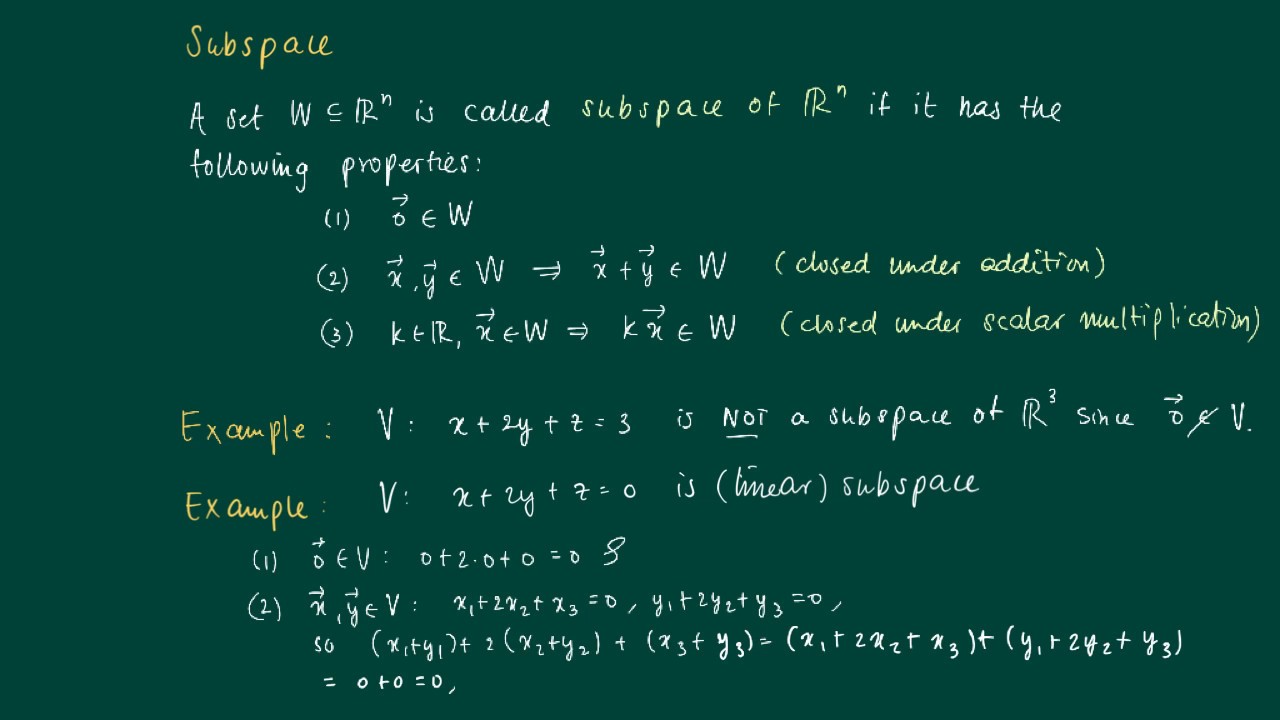 Subspace
A set W ⊆ ℝⁿ is called subspace of ℝⁿ if it has the
following properties:
(1) 0⃗ ∈ W
(2) x⃗, y⃗ ∈ W ⇒ x⃗ + y⃗ ∈ W (closed under addition)
(3) k ∈ ℝ, x⃗ ∈ W ⇒ k x⃗ ∈ W (closed under scalar multiplication)
Example: V: x + 2y + z = 3 is NOT a subspace of ℝ³ since 0⃗ ∉ V.
Example: V: x + 2y + z = 0 is (linear) subspace
(1) 0⃗ ∈ V: 0 + 2·0 + 0 = 0
(2) x⃗, y⃗ ∈ V: x₁ + 2x₂ + x₃ = 0, y₁ + 2y₂ + y₃ = 0,
so (x₁+y₁) + 2(x₂+y₂) + (x₃+y₃) = (x₁ + 2x₂ + x₃) + (y₁ + 2y₂ + y₃)
= 0+0 = 0,